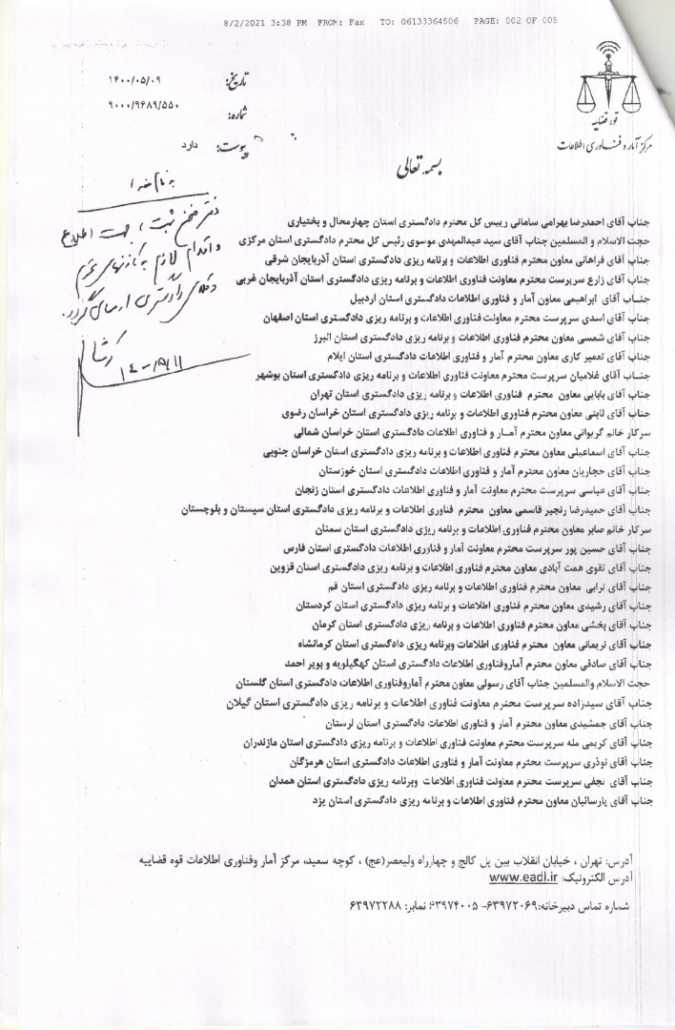 8/2/2021 3:38 PM FROM: Fax TO: 06133364506 PAGE: 002 OF 005
قوه قضاییه
مرکز آمار و فناوری اطلاعات
تاریخ: ۱۴۰۰/۰۵/۰۹
شماره: ۹۰۰۰/۹۶۸۹/۵۵۰
پیوست: دارد
بسمه تعالی
بنام خدا
دفتر ثبت جهت اطلاع
و اقدام لازم به کانونهای محترم
وکلای دادگستری ارسال گردد.
جناب آقای احمدرضا بهرامی سامانی رییس کل محترم دادگستری استان چهارمحال و بختیاری
حجت الاسلام و المسلمین جناب آقای سید عبدالمهدی موسوی رئیس کل محترم دادگستری استان مرکزی
جناب آقای فراهانی معاون محترم فناوری اطلاعات و برنامه ریزی دادگستری استان آذربایجان شرقی
جناب آقای زارع سرپرست محترم معاونت فناوری اطلاعات و برنامه ریزی دادگستری استان آذربایجان غربی
جناب آقای ابراهیمی معاون آمار و فناوری اطلاعات دادگستری استان اردبیل
جناب آقای اسدی سرپرست محترم معاونت فناوری اطلاعات و برنامه ریزی دادگستری استان اصفهان
جناب آقای شمسی معاون محترم فناوری اطلاعات و برنامه ریزی دادگستری استان البرز
جناب آقای تعمیر کاری معاون محترم آمار و فناوری اطلاعات دادگستری استان ایلام
جناب آقای غلامیان سرپرست محترم معاونت فناوری اطلاعات و برنامه ریزی دادگستری استان بوشهر
جناب آقای بابایی معاون محترم فناوری اطلاعات و برنامه ریزی دادگستری استان تهران
جناب آقای ثابتی معاون محترم فناوری اطلاعات و برنامه ریزی دادگستری استان خراسان رضوی
سرکار خانم گریوانی معاون محترم آمار و فناوری اطلاعات دادگستری استان خراسان شمالی
جناب آقای اسماعیلی معاون محترم فناوری اطلاعات و برنامه ریزی دادگستری استان خراسان جنوبی
جناب آقای حجاریان معاون محترم آمار و فناوری اطلاعات دادگستری استان خوزستان
جناب آقای عباسی سرپرست محترم معاونت آمار و فناوری اطلاعات دادگستری استان زنجان
جناب آقای حمیدرضا رنجبر قاسمی معاون محترم فناوری اطلاعات و برنامه ریزی دادگستری استان سیستان و بلوچستان
سرکار خانم صابر معاون محترم فناوری اطلاعات و برنامه ریزی دادگستری استان سمنان
جناب آقای حسین پور سرپرست محترم معاونت آمار و فناوری اطلاعات دادگستری استان فارس
جناب آقای تقوی همت آبادی معاون محترم فناوری اطلاعات و برنامه ریزی دادگستری استان قزوین
جناب آقای ترابی معاون محترم فناوری اطلاعات و برنامه ریزی دادگستری استان قم
جناب آقای رشیدی معاون محترم فناوری اطلاعات و برنامه ریزی دادگستری استان کردستان
جناب آقای بخشی معاون محترم فناوری اطلاعات و برنامه ریزی دادگستری استان کرمان
جناب آقای نریمانی معاون محترم فناوری اطلاعات وبرنامه ریزی دادگستری استان کرمانشاه
جناب آقای صادقی معاون محترم آماروفناوری اطلاعات دادگستری استان کهگیلویه و بویر احمد
حجت الاسلام والمسلمین جناب آقای رسولی معاون محترم آماروفناوری اطلاعات دادگستری استان گلستان
جناب آقای سیدزاده سرپرست محترم معاونت فناوری اطلاعات و برنامه ریزی دادگستری استان گیلان
جناب آقای جمشیدی معاون محترم آمار و فناوری اطلاعات دادگستری استان لرستان
جناب آقای کریمی مله سرپرست محترم معاونت فناوری اطلاعات و برنامه ریزی دادگستری استان مازندران
جناب آقای نوذری سرپرست محترم معاونت آمار و فناوری اطلاعات دادگستری استان هرمزگان
جناب آقای نجفی سرپرست محترم معاونت فناوری اطلاعات وبرنامه ریزی دادگستری استان همدان
جناب آقای پارسائیان معاون محترم فناوری اطلاعات و برنامه ریزی دادگستری استان یزد
آدرس: تهران ، خیابان انقلاب بین پل کالج و چهارراه ولیعصر(عج) ، کوچه سعید، مرکز آمار وفناوری اطلاعات قوه قضاییه
آدرس الکترونیک: www.eadl.ir
شماره تماس دبیرخانه:۶۳۹۷۲۰۶۹- ۶۳۹۷۴۰۰۵؛ نمابر: ۶۳۹۷۲۲۸۸